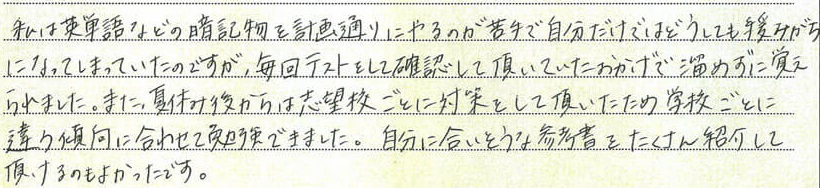 私は英単語などの暗記物を計画通りにやるのが苦手で自分だけではどうしても緩みがち
になってしまっていたのですが、毎回テストをして確認して頂いていたおかげで溜めずに覚え
られました。また、夏休み後からは志望校ごとに対策をして頂いたため学校ごとに
違う傾向に合わせて勉強できました。自分に合いそうな参考書をたくさん紹介して
頂けるのもよかったです。